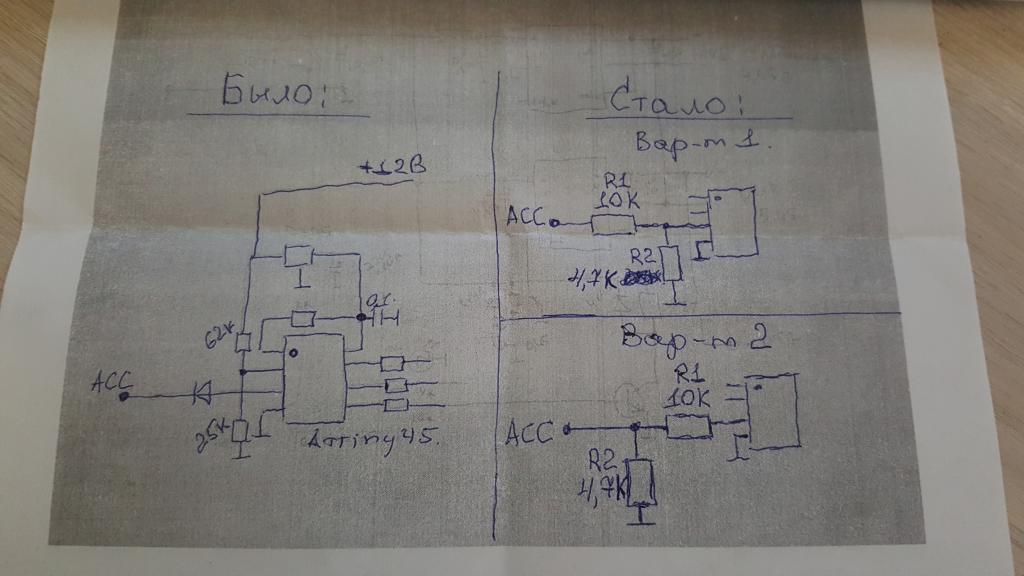 Было:
+12В
0,1
62к
АСС
25к
Attiny45.
Стало:
Вар-т 1.
R1
10К
АСС
R2
4,7К
Вар-т 2
R1
10К
АСС
R2
4,7К